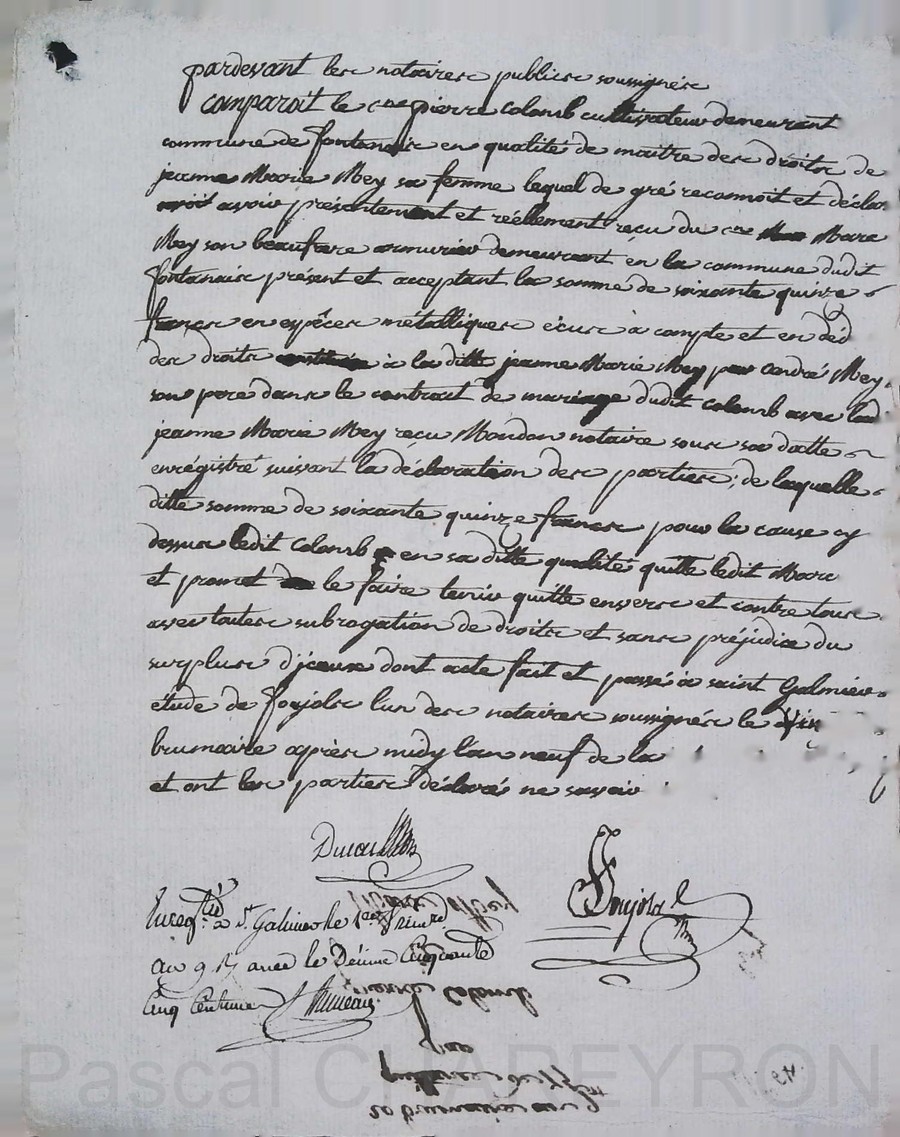 pardevant les notaires publics soussignés
comparoit le cen pierre Colomb cultivateur demeurant
commune de fontanais en qualité de maitre des droits de
jeanne Marie Mey sa femme lequel de gré reconnoit et déclare
avoir présentement et réellement reçu du cen Marc
Mey son beaufrere armurier demeurant en la commune dudit
fontanais présent et acceptant la somme de soixante quinze
francs en espèces métalliques écus à compte et en déd
des droits à la ditte jeanne Marie Mey par andré Mey
son pere dans le contrait de mariage dudit Colomb avec lad
jeanne Marie Mey recu Mondon notaire sous sa datte
enrégistré suivant la déclaration des parties; de laquelle
ditte somme de soixante quinze francs pour la cause cy
dessus ledit Colomb en sa ditte qualité quitte ledit Marc
et promet le faire tenir quitte envers et contre tous
avec toutes subrogation de droits et sans préjudice du
surplus d'iceux dont acte fait et passé à saint Galmier
étude de foujols lun des notaires soussignés le
brumaire après midy l'an neuf de la
et ont les parties déclarés ne savoir
foujols
Enregtré a St Galmier le
an 9 le Décime Cinquante
Cinq Centimes
pierre Colomb
20 brumaire an 9
Pascal CHAREYRON